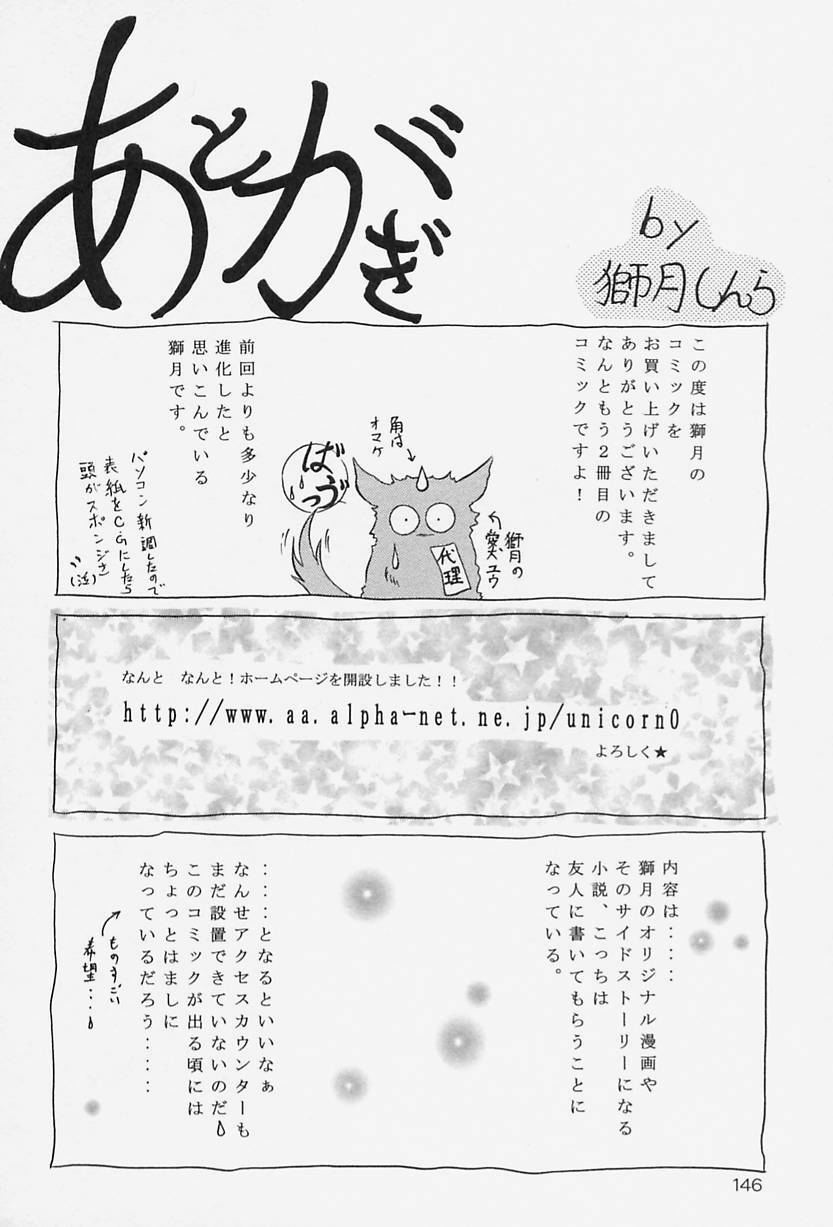 あとがき
by
獅月しんら
この度は獅月の
コミックを
お買い上げいただきまして
ありがとうございます。
なんともう２冊目の
コミックですよ！
獅月の
愛犬ユウ
代理
角は
オマケ
ばうっ
前回よりも多少なり
進化したと
思いこんでいる
獅月です。
パソコン新調したので
表紙をC.Gにしたら
頭がスポンジさ
(泣)
なんと　なんと！ホームページを開設しました！！
http://www.aa.alpha-net.ne.jp/unicorn0
よろしく★
内容は．．．．
獅月のオリジナル漫画や
そのサイドストーリーになる
小説、こっちは
友人に書いてもらうことに
なっている。
．．．．となるといいなぁ
なんせアクセスカウンターも
まだ設置できていないのだ
このコミックが出る頃には
ちょっとはましに
なっているだろう．．．．
ものすごい
希望...
146